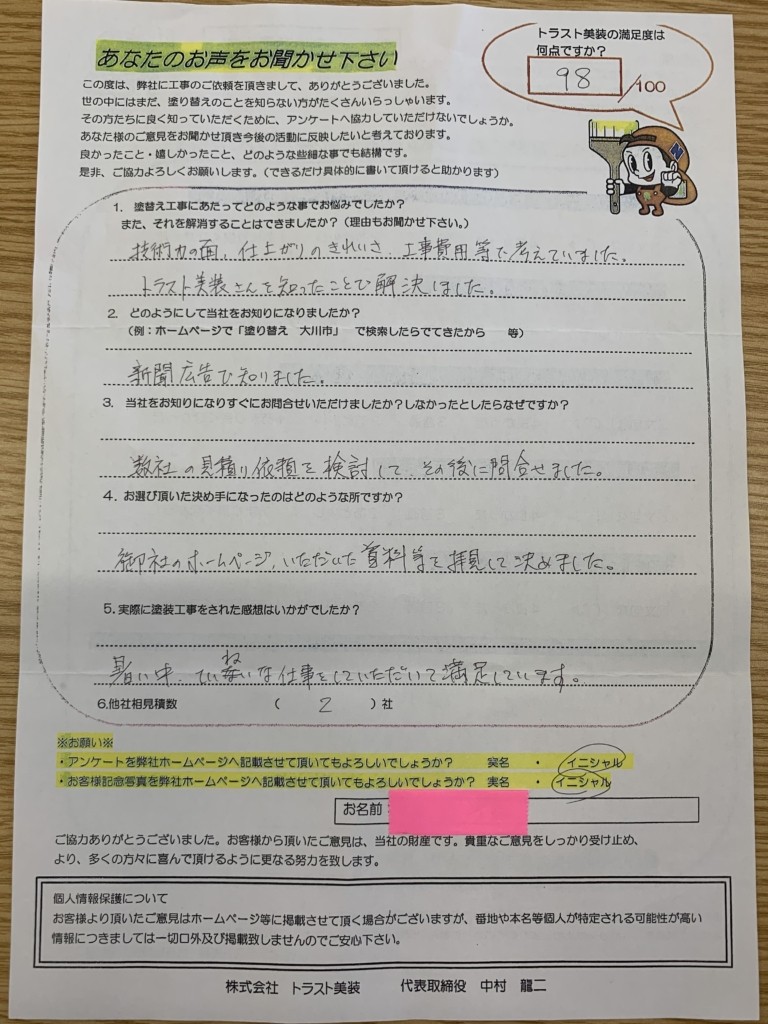 トラスト美装の満足度は
何点ですか？
98 /100
あなたのお声をお聞かせ下さい
この度は、弊社に工事のご依頼を頂きまして、ありがとうございました。
世の中にはまだ、塗り替えのことを知らない方がたくさんいらっしゃいます。
その方たちに良く知っていただくために、アンケートへ協力していただけないでしょうか。
あなた様のご意見をお聞かせ頂き今後の活動に反映したいと考えております。
良かったこと・嬉しかったこと、どのような些細な事でも結構です。
是非、ご協力よろしくお願いします。（できるだけ具体的に書いて頂けると助かります）
N
1. 塗替え工事にあたってどのような事でお悩みでしたか？
また、それを解消することはできましたか？（理由もお聞かせ下さい。）
技術力の面、仕上がりのきれいさ、工事費用等で考えていました。
トラスト美装さんを知ったことで解決しました。
2. どのようにして当社をお知りになりましたか？
（例：ホームページで「塗り替え 大川市」 で検索したらでてきたから 等）
新聞広告で知りました。
3. 当社をお知りになりすぐにお問合せいただけましたか？しなかったとしたらなぜですか？
数社の見積り依頼を検討して、その後に問合せました。
4. お選び頂いた決め手になったのはどのような所ですか？
御社のホームページ、いただいた資料等を拝見して決めました。
5.実際に塗装工事をされた感想はいかがでしたか？
暑い中、ていねいな仕事をしていただいて満足しています。
6.他社相見積数 （ 2 ）社
※お願い※
・アンケートを弊社ホームページへ記載させて頂いてもよろしいでしょうか？ 実名 ・ イニシャル
・お客様記念写真を弊社ホームページへ記載させて頂いてもよろしいでしょうか？ 実名 ・ イニシャル
お名前
ご協力ありがとうございました。お客様から頂いたご意見は、当社の財産です。貴重なご意見をしっかり受け止め、
より、多くの方々に喜んで頂けるように更なる努力を致します。
個人情報保護について
お客様より頂いたご意見はホームページ等に掲載させて頂く場合がございますが、番地や本名等個人が特定される可能性が高い
情報につきましては一切口外及び掲載致しませんのでご安心下さい。
株式会社 トラスト美装 代表取締役 中村 龍二